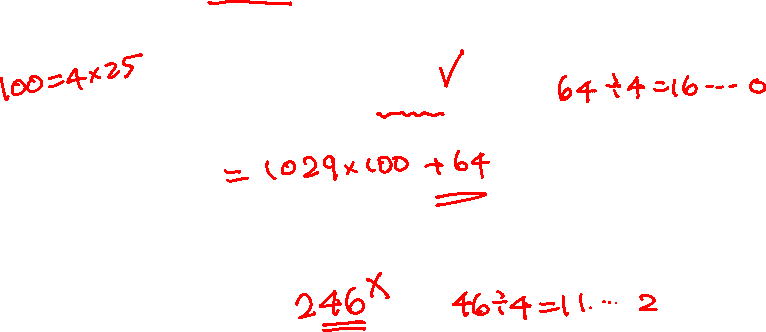 100=4×25
✓
64÷4=16···0
=1029×100+64
246×
46÷4=11···2